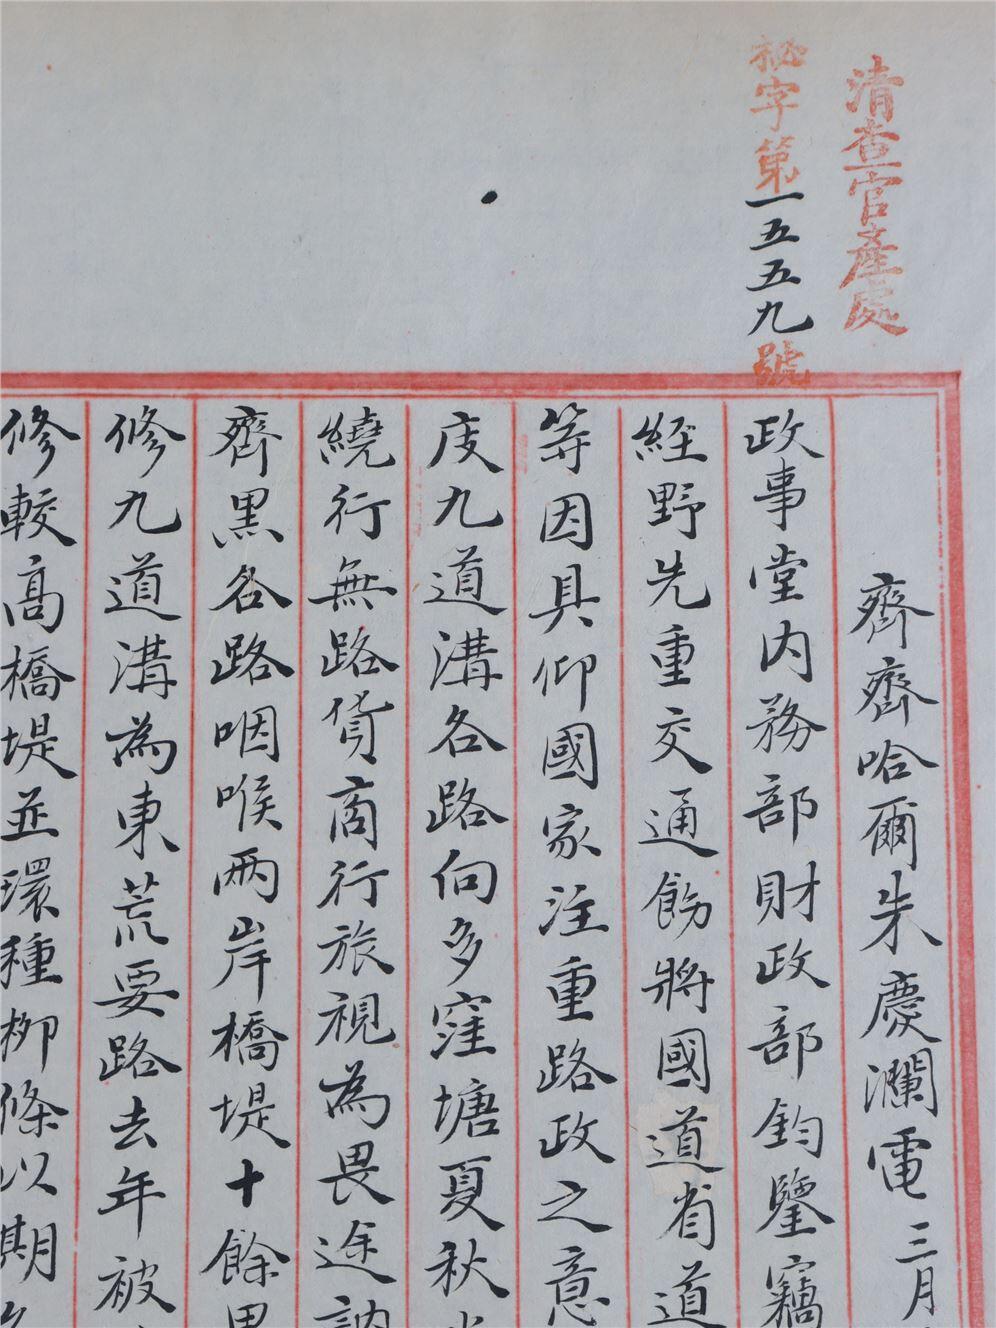 清查官產處
祕字第一五五九號
齊齊哈爾朱慶瀾電三月
政事堂內務部財政部鈞鑒竊
經野先重交通飭將國道省道
等因具仰國家注重路政之意
度九道溝各路向多窪塘夏秋
繞行無路貨商行旅視為畏途
齊黑各路咽喉兩岸橋堤十餘里
修九道溝為東荒要路去年被
修較高橋堤並環種柳條以期